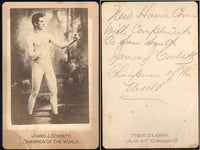 JAMES J. CORBETT
CHAMPION OF THE WORLD
New Haven Conn
With Compliments
To
James J Corbett
Champion of the
World